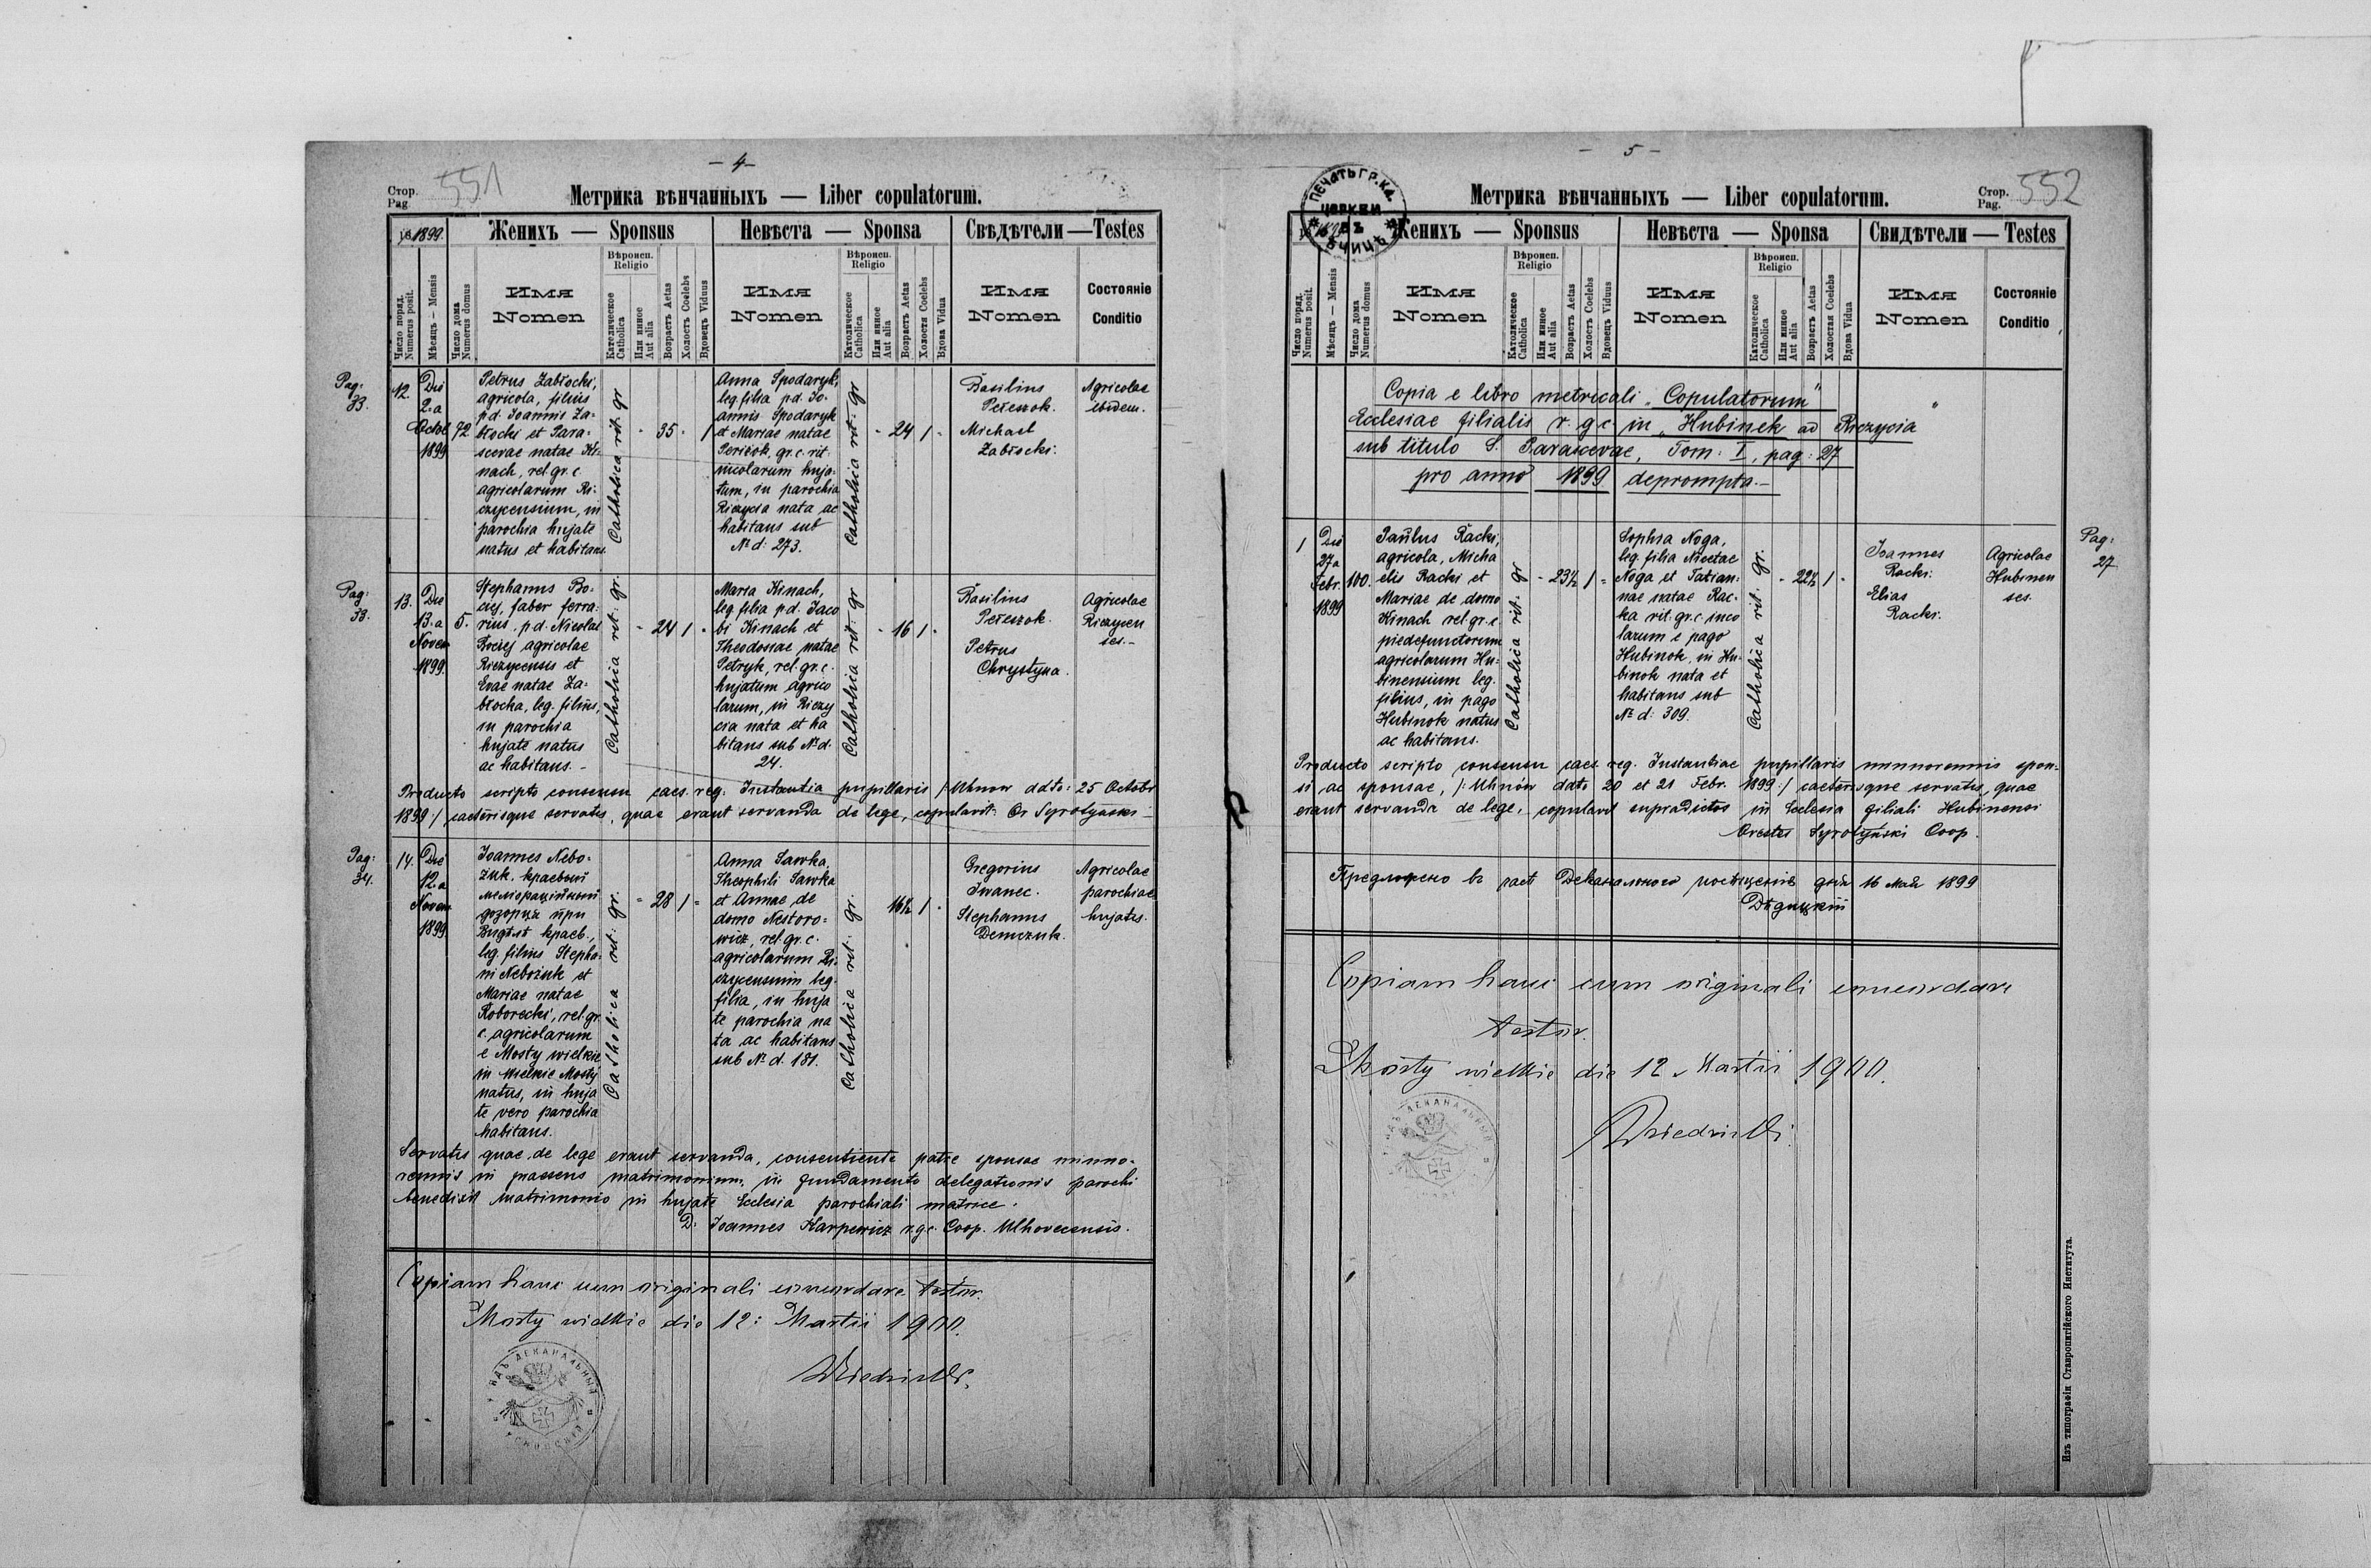 – 4 –
Стор.
Pag.
551
Метрика вѣнчанныхъ — Liber copulatorum.
1899.
Женихъ — Sponsus
Невѣста — Sponsa
Свѣдѣтели — Testes
Число поряд.
Numerus posit.
Мѣсяцъ — Mensis
Число дома
Numerus domus
Имя
Nomen
Вѣроисп.
Religio
Католическое
Catholica
Или инное
Aut alia
Возрастъ Aetas
Холостъ Coelebs
Вдовецъ Viduus
Имя
Nomen
Вѣроисп.
Religio
Католическое
Catholica
Или инное
Aut alia
Возрастъ Aetas
Холостя Coelebs
Вдова Vidua
Имя
Nomen
Состояніе
Conditio
Pag:
33.
12.
Die
2.a
Octob
1899
72
Petrus Zabłocki,
agricola, filius
p.d. Joannis Za-
błocki et Para-
scevae natae Ki-
nach, rel. gr. c.
agricolarum Ri-
czycensium, in
parochia hujate
natus et habitans
Catholica rit: gr
35
1
Anna Spodaryk,
leg. filia p.d. Jo-
annis Spodaryk
et Mariae natae
gr. c. rit.
incolarum huja-
tum, in parochia
Riczycia nata ac
habitans sub
№ d: 273.
Catholica rit: gr
24
1
Basilius
Pereszok.
Michael
Zabłocki.
Agricolae
ibidem.
Pag:
33.
13.
Die
13.a
Novem
1899.
5.
Stephanus Bo-
ciej, faber ferra-
rius, p.d. Nicolai
Bociej agricolae
Riczycensis et
Evae natae Za-
błocka, leg. filius,
in parochia
hujate natus
ac habitans.-
Catholica rit: gr.
24
1
Maria Kinach,
leg. filia p.d. Jaco
bi Kinach et
Theodosiae, natae
Petryk, rel. gr. c.
hujatum agrico
larum, in Riczy
cia nata et ha
bitans sub № d.
24.
Catholica rit: gr
16
1
Basilius
Pereszok.
Petrus
Chrystyna.
Agricolae
Riczycen
ses.-
Producto scripto consensu caes. reg. Instantia pupillaris /: Uhnow ddto: 25 Octobr
1899 :/ caeterisque servatis, quae erant servanda de lege, copulavit: Or Syrotyński
Pag:
34.
14.
Die
12.a
Novem
1899
Joannes Nebo-
żuk, краевый
меліораційный
дозорця при
краев.,
leg. filius Stepha-
ni Nebożuk et
Mariae natae
Roborecki, rel. gr.
c. agricolarum
e Mosty wielkie
in Wielkie Mosty
natus, in huja
te vero parochia
habitans.
Catholica rit: gr.
28
1
Anna Sawka,
Theophili Sawka
et Annae, de
domo Nestoro-
wicz, rel. gr. c.
agricolarum Ri-
czycensium leg.
filia, in huja
te parochia na
ta ac habitans
sub № d. 181.
Catholica rit: gr.
16½
1
Gregorius
Iwanec.
Stephanus
Demczuk.
Agricolae
parochiae
hujatis.
Servatis quae de lege erant servanda, consentiente patre sponsae minno-
rennis in praesens matrimonium, in fundamento delegationis parochi
benedixit Matrimonio in hujate Ecclesia parochiali matrice.
D: Joannes Karpewicz r. g. c. Coop. Ulhovecensis.
Copiam hanc cum originali concordare testor.
Mosty wielkie die 12: Martii 1900.
– 5 –
Стор.
Pag.
552
Метрика вѣнчанныхъ — Liber copulatorum.
ПЕЧАТЬ ГР. КА.
ЦЕРКВИ
ВЪ
Женихъ — Sponsus
Невѣста — Sponsa
Свидѣтели — Testes
Число поряд.
Numerus posit.
Мѣсяцъ — Mensis
Число дома
Numerus domus
Имя
Nomen
Вѣроисп.
Religio
Католическое
Catholica
Или инное
Aut alia
Возрастъ Aetas
Холостъ Coelebs
Вдовецъ Viduus
Имя
Nomen
Вѣроисп.
Religio
Католическое
Catholica
Или инное
Aut alia
Возрастъ Aetas
Холостая Coelebs
Вдова Vidua
Имя
Nomen
Состояніе
Conditio
Copia e libro metricali „Copulatorum"
Ecclesiae filialis r. g. c. in „Hubinek ad Riczycia"
sub titulo S. Parascevae, Tom: I, pag: 27
pro anno 1899 deprompta.-
Pag:
27
1
Die
27a
Febr.
1899
100.
Paulus Racki,
agricola, Micha
elis Racki et
Mariae de domo
Kinach rel. gr. c.
piedefunctorum
agricolarum Hu-
binensium leg.
filius, in pago
Hubinok natus
ac habitans.
Catholica rit: gr
23½
1
Sophia Noga,
leg. filia Nicetae
Noga et Tatian-
nae natae Rac-
ka rit. gr. c. inco
larum e pago
Hubinok, in Hu-
binok nata et
habitans sub
№ d: 309.
Catholica rit: gr.
22½
1
Joannes
Racki.
Elias
Racki.
Agricolae
Hubinen
ses.
Producto scripto consensu caes. reg. Instantiae pupillaris minnorennis spon-
si ac sponsae, /: Uhnów dato 20 et 21 Febr. 1899 :/ caeterisque servatis, quae
erant servanda de lege, copulavit supradictos in Ecclesia filiali Hubinensi
Orestes Syrotyński Coop.
Предложено въ часѣ Деканального посѣщенія дня 16 Мая 1899
Дѣдицкій
Copiam hanc cum originali concordare
testor.
Mosty wielkie die 12 Martii 1900.
Изъ типографіи Ставропигійского Института.